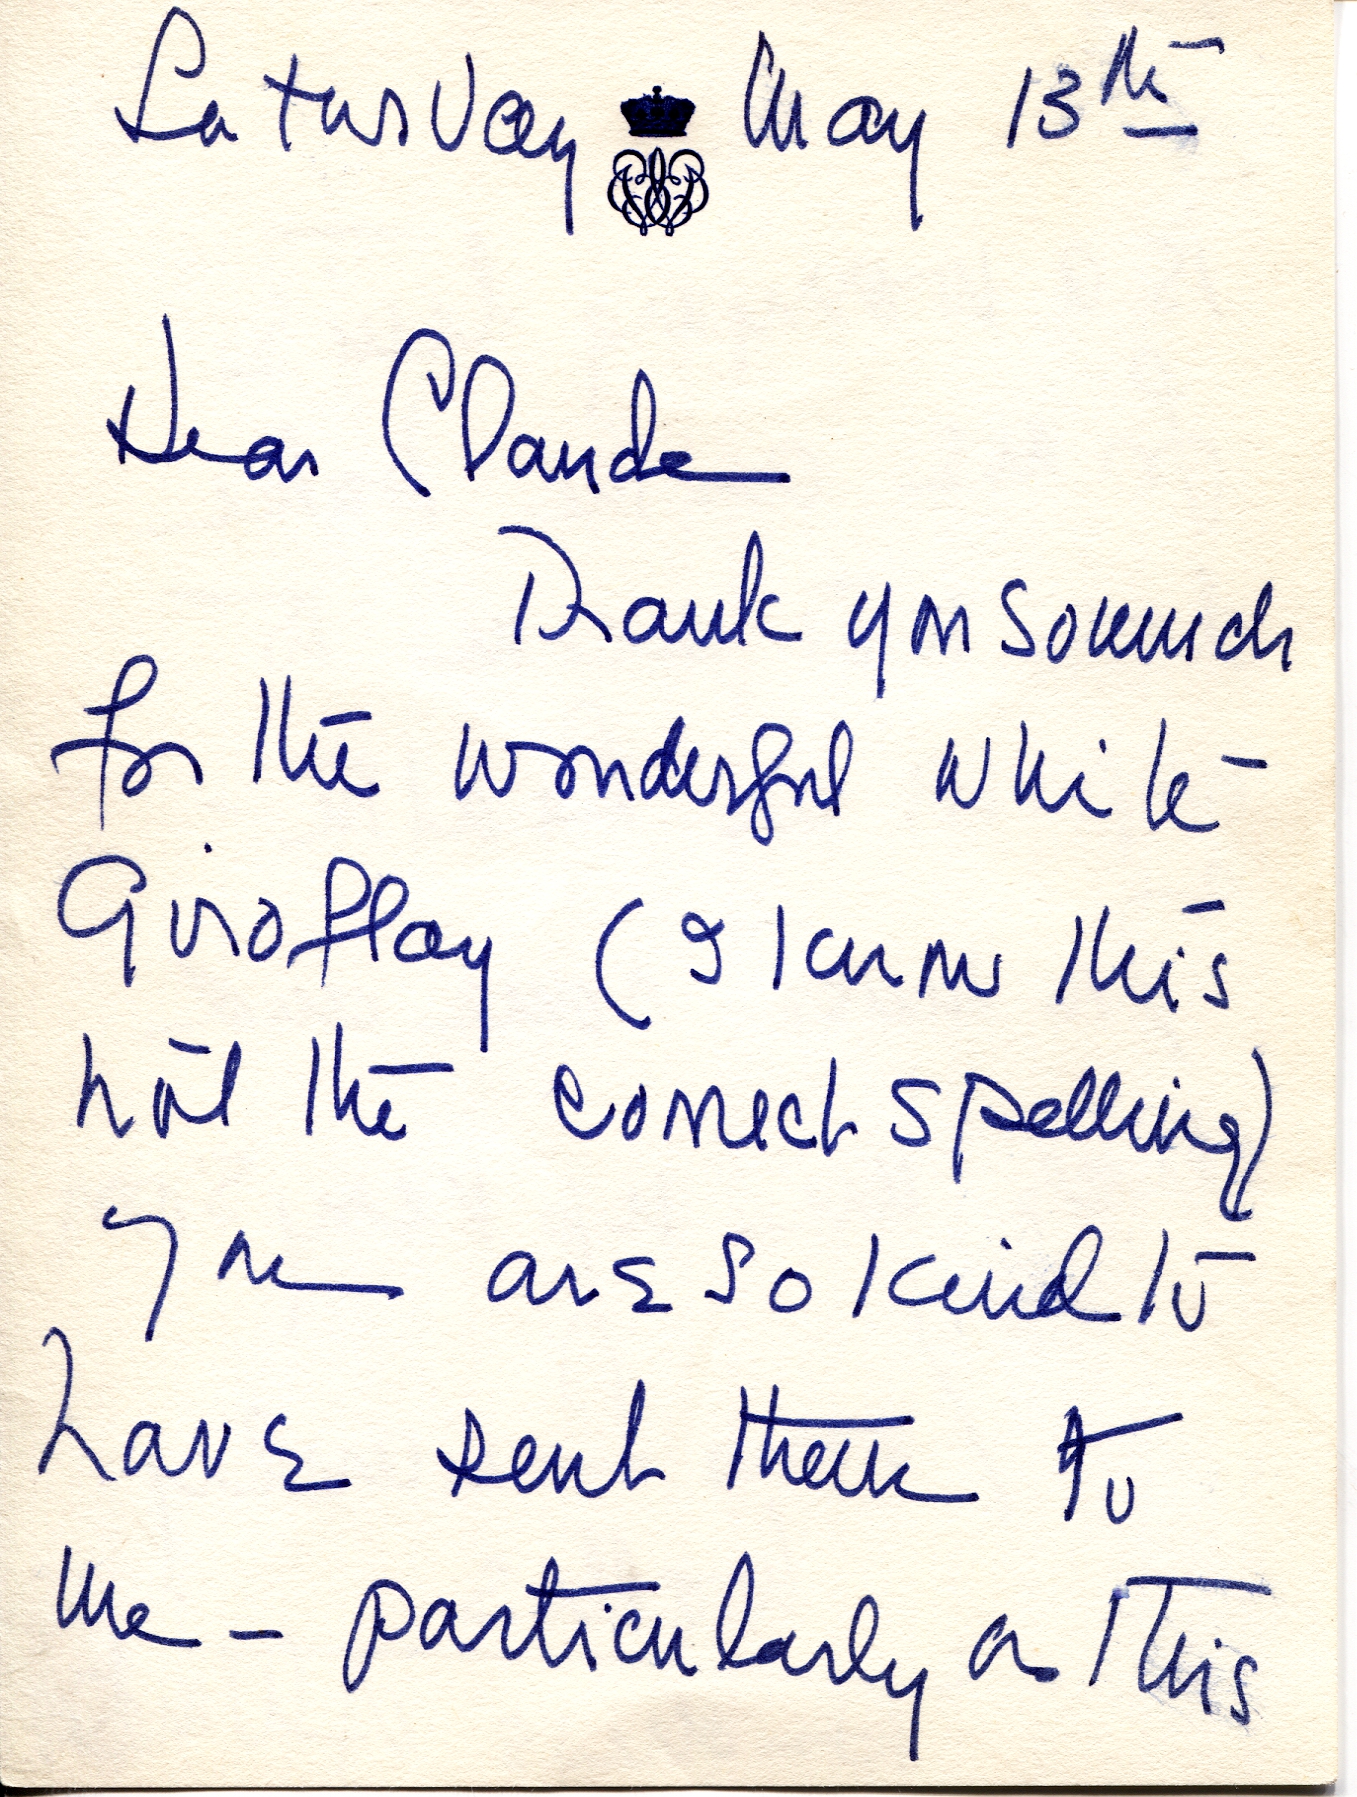 Saturday May 13th
Dear Claude
Thank you so much
for the wonderful white
Giroflay (I know this
not the correct spelling)
you are so kind to
have sent them to
me – particularly as this